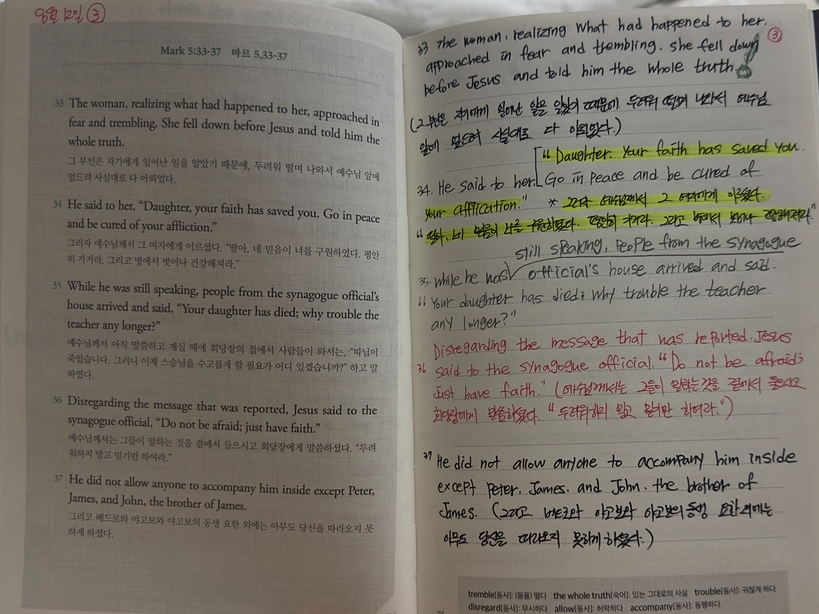 8월 12일 ③
Mark 5:33-37 마르 5,33-37
33 The woman, realizing what had happened to her, approached in
fear and trembling. She fell down before Jesus and told him the
whole truth.
그 부인은 자기에게 일어난 일을 알았기 때문에, 두려워 떨며 나와서 예수님 앞에
엎드려 사실대로 다 아뢰었다.
34 He said to her, “Daughter, your faith has saved you. Go in peace
and be cured of your affliction.”
그러자 예수님께서 그 여자에게 이르셨다. “딸아, 네 믿음이 너를 구원하였다. 평안
히 가거라. 그리고 병에서 벗어나 건강해져라.”
35 While he was still speaking, people from the synagogue official’s
house arrived and said, “Your daughter has died; why trouble the
teacher any longer?”
예수님께서 아직 말씀하고 계실 때에 회당장의 집에서 사람들이 와서는, “따님이
죽었습니다. 그러니 이제 스승님을 수고롭게 할 필요가 어디 있겠습니까?” 하고 말
하였다.
36 Disregarding the message that was reported, Jesus said to the
synagogue official, “Do not be afraid; just have faith.”
예수님께서는 그들이 말하는 것을 곁에서 들으시고 회당장에게 말씀하셨다. “두려
워하지 말고 믿기만 하여라.”
37 He did not allow anyone to accompany him inside except Peter,
James, and John, the brother of James.
그리고 베드로와 야고보와 야고보의 동생 요한 외에는 아무도 당신을 따라오지 못
하게 하셨다.
③
33 The woman, realizing what had happened to her.
approached in fear and trembling. she fell down
before Jesus and told him the whole truth.
(그 부인은 자기에게 일어난 일을 알았기 때문에 두려워 떨며 나와서 예수님
앞에 엎드려 사실대로 다 아뢰었다.)
"Daughter. Your faith has saved you.
34. He said to her. Go in peace and be cured of
your afflication." * 그러자 예수님께서 그 여자에게 이르셨다.
"딸아, 네 믿음이 너를 구원하였다. 평안히 가거라. 그리고 병에서 벗어나 건강해져라."
still speaking, people from the synagogue
35. while he was official's house arrived and said.
"Your daughter has died; why trouble the teacher
any longer?"
Disregarding the message that was reported. Jesus
36 said to the synagogue official, "Do not be afraid;
Just have faith." (예수님께서는 그들이 말하는것을 곁에서 들으시고
회당장에게 말씀하셨다. "두려워하지 말고 믿기만 하여라.")
37 He did not allow anyone to accompany him inside
except Peter, James. and John. the brother of
James. (그리고 베드로와 야고보와 야고보의 동생 요한 외에는
아무도 당신을 따라오지 못하게 하셨다.)
tremble(동사): (몸을) 떨다 the whole truth(숙어): 있는 그대로의 사실 trouble(동사): 귀찮게 하다
disregard(동사): 무시하다 allow(동사): 허락하다 accompany(동사): 동행하다